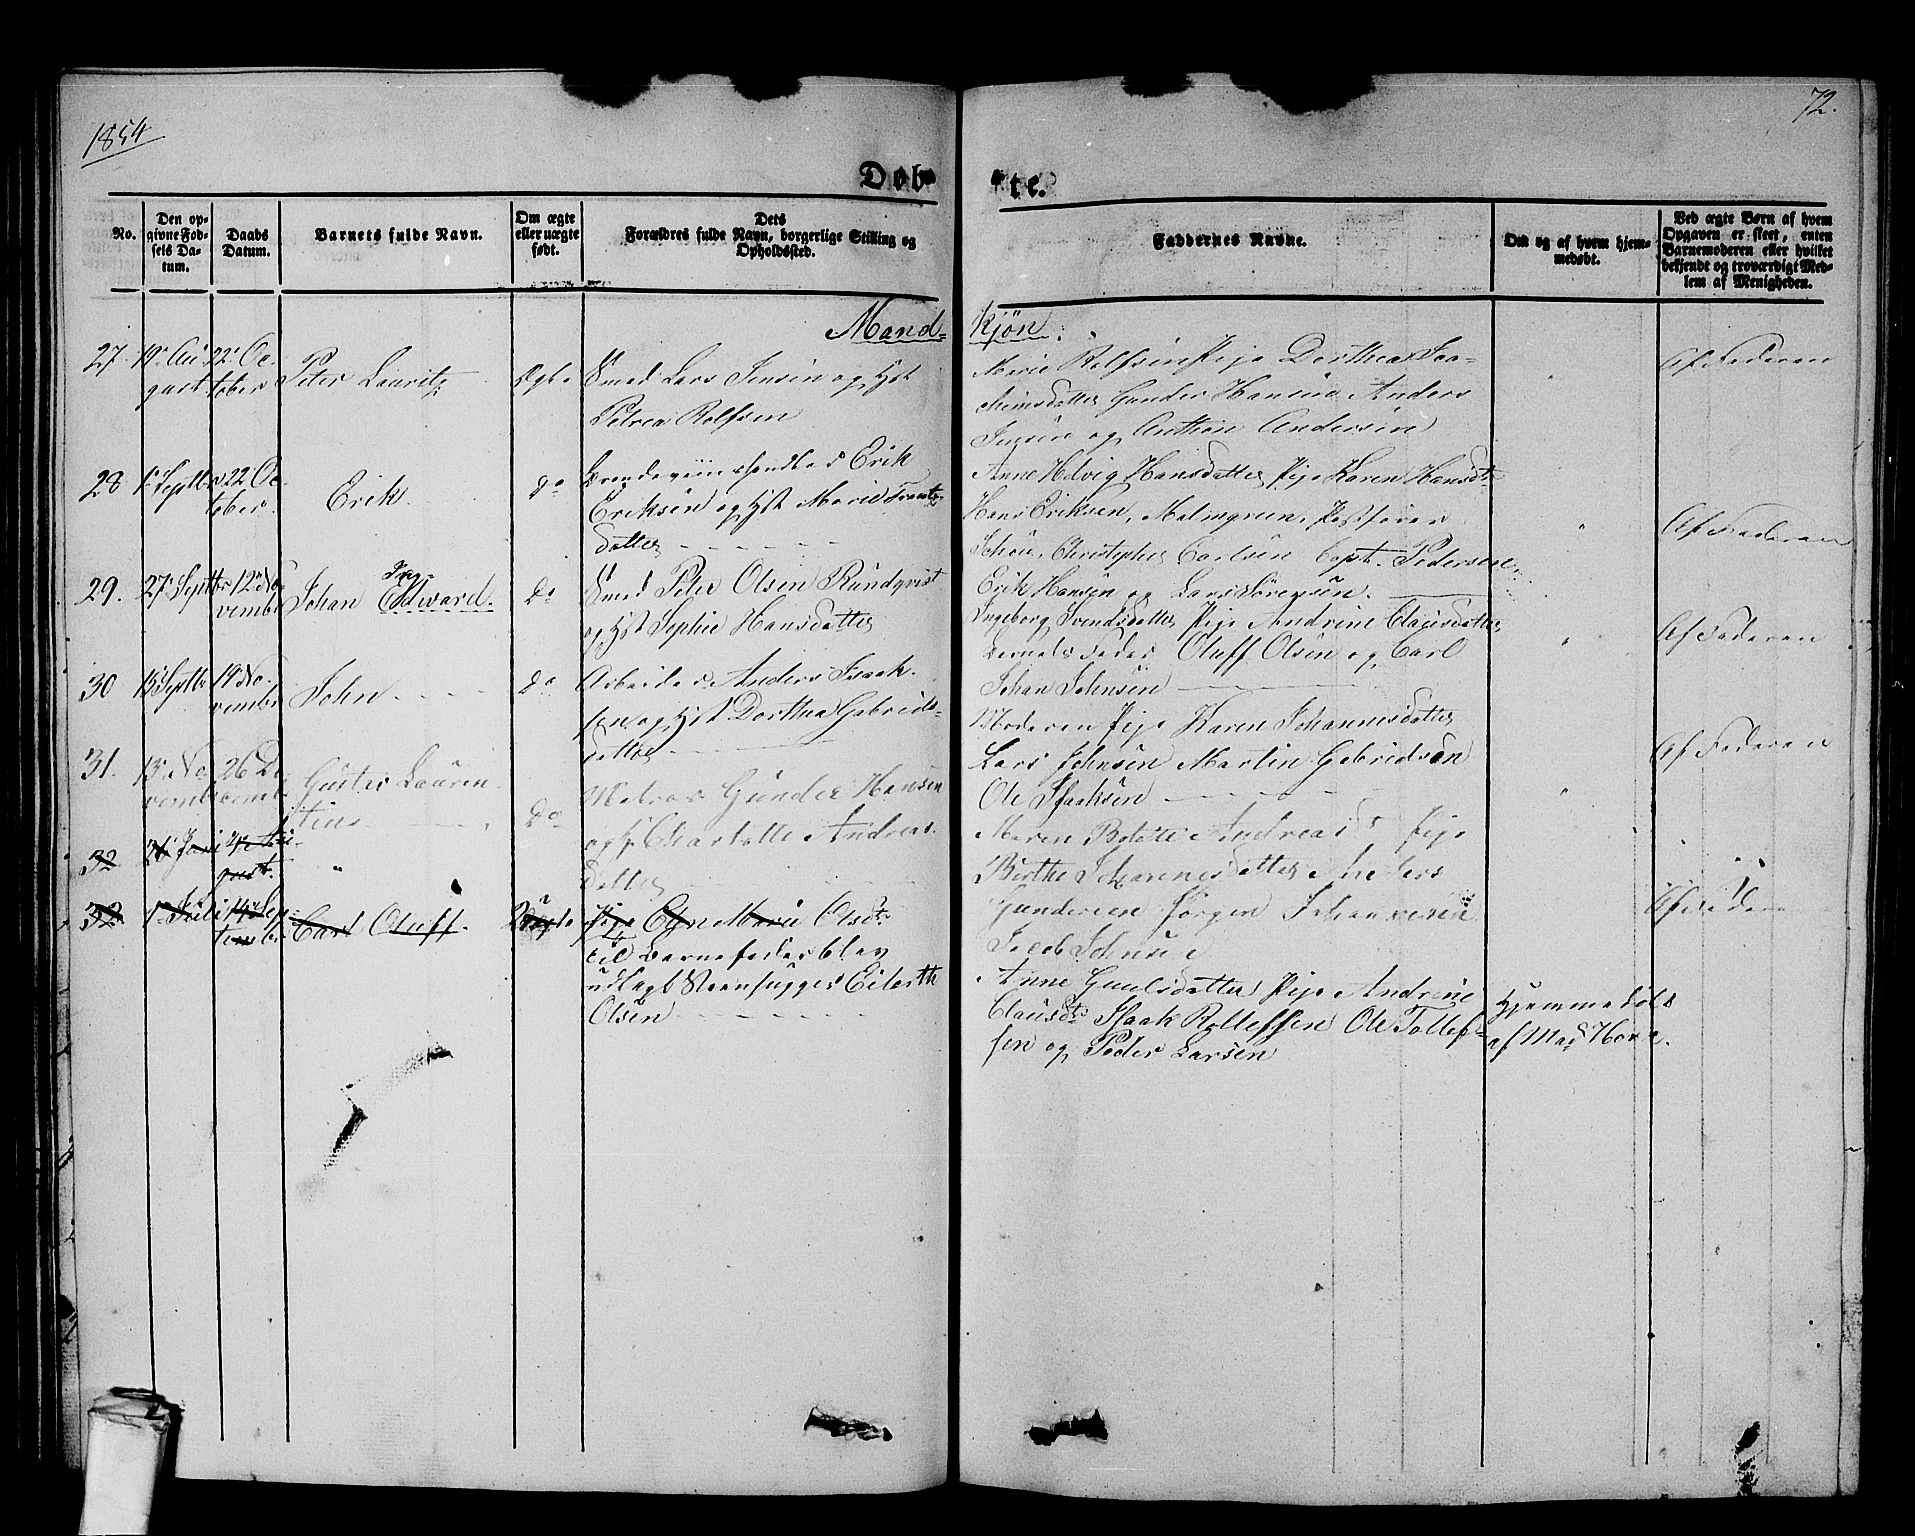 1854
72.
Døb=
=te.
No.
Den op=
givne Fød=
sels Da=
tum.
Daabs
Datum.
Barnets fulde Navn.
Om ægte
eller uægte
født.
Dets
Forældres fulde Navn, borgerlige Stilling og
Opholdssted.
Faddernes Navne.
Om og af hvem hjem=
medøbt.
Ved ægte Børn af hvem
Opgaven er skeet, enten
Barnemoderen eller hvilket
bekjendt og troværdigt Med=
lem af Menigheden.
Mand=
kjön.
27. 19 Au 22 Oc
gust tober Peter Lauritz Ægte Smed Lars Jensen og Hst
Petrea Rolfsen
Marie Rolfsen Pige Dorthea Joa=
chimsdatter Gunder Hansen Anders
Jensen og Anthon Andersen
Af Faderen
28 1 Septbr 22 Oc
tober. Erik do Erik
Eriksen og Hst Marie
datter
Anne Helvig Hansdatter Pige Karen Hansdt
Hans Eriksen, Malmgreen,
Christopher Carlsen Capt. Pedersen
Erik Hansen og Lars Sörensen.
Af Faderen
29. 27 Septbr 12 No
vembr Johan Edward. do Smed Peter Olsen Rundqvist
og Hst Sophie Hansdatter
Ingeborg Svendsdatter Pige Andrine Clausdatter
Barnets Fader Oluff Olsen og Carl
Johan Johnsen
Af Faderen
30 15 Septbr 19 No.
vembr John do Arbeider Anders Isaak
sen og Hst Dorthea Gabriels
datter
Moderen Pige Karen Johannesdatter
Lars Johnsen Martin Gabrielsen
Ole Isaaksen
Af Faderen
31. 13 No 26 De
Gustav Lauren
tius do Matros Gunder Hansen
og H. Charlotte Andreas
datter
Maren Andreasdt Pige
Birthe Johannesdatter Anders
Gundersen Jörgen Johannesen
Jacob Johnsen
Af Faderen
32 gust. "
32 1 Juli 14 Sep
tembr Carl Oluff. Uægte Pige Marie Olsdt
til Barnefader blev
udlagt Steenhugger Eilerth
Olsen
Anne Pige Andrine
Clausdt Isaak Rollefsen Ole Tollef=
sen og Peder Larsen
Hjemmedöbt
af Mad Horn.